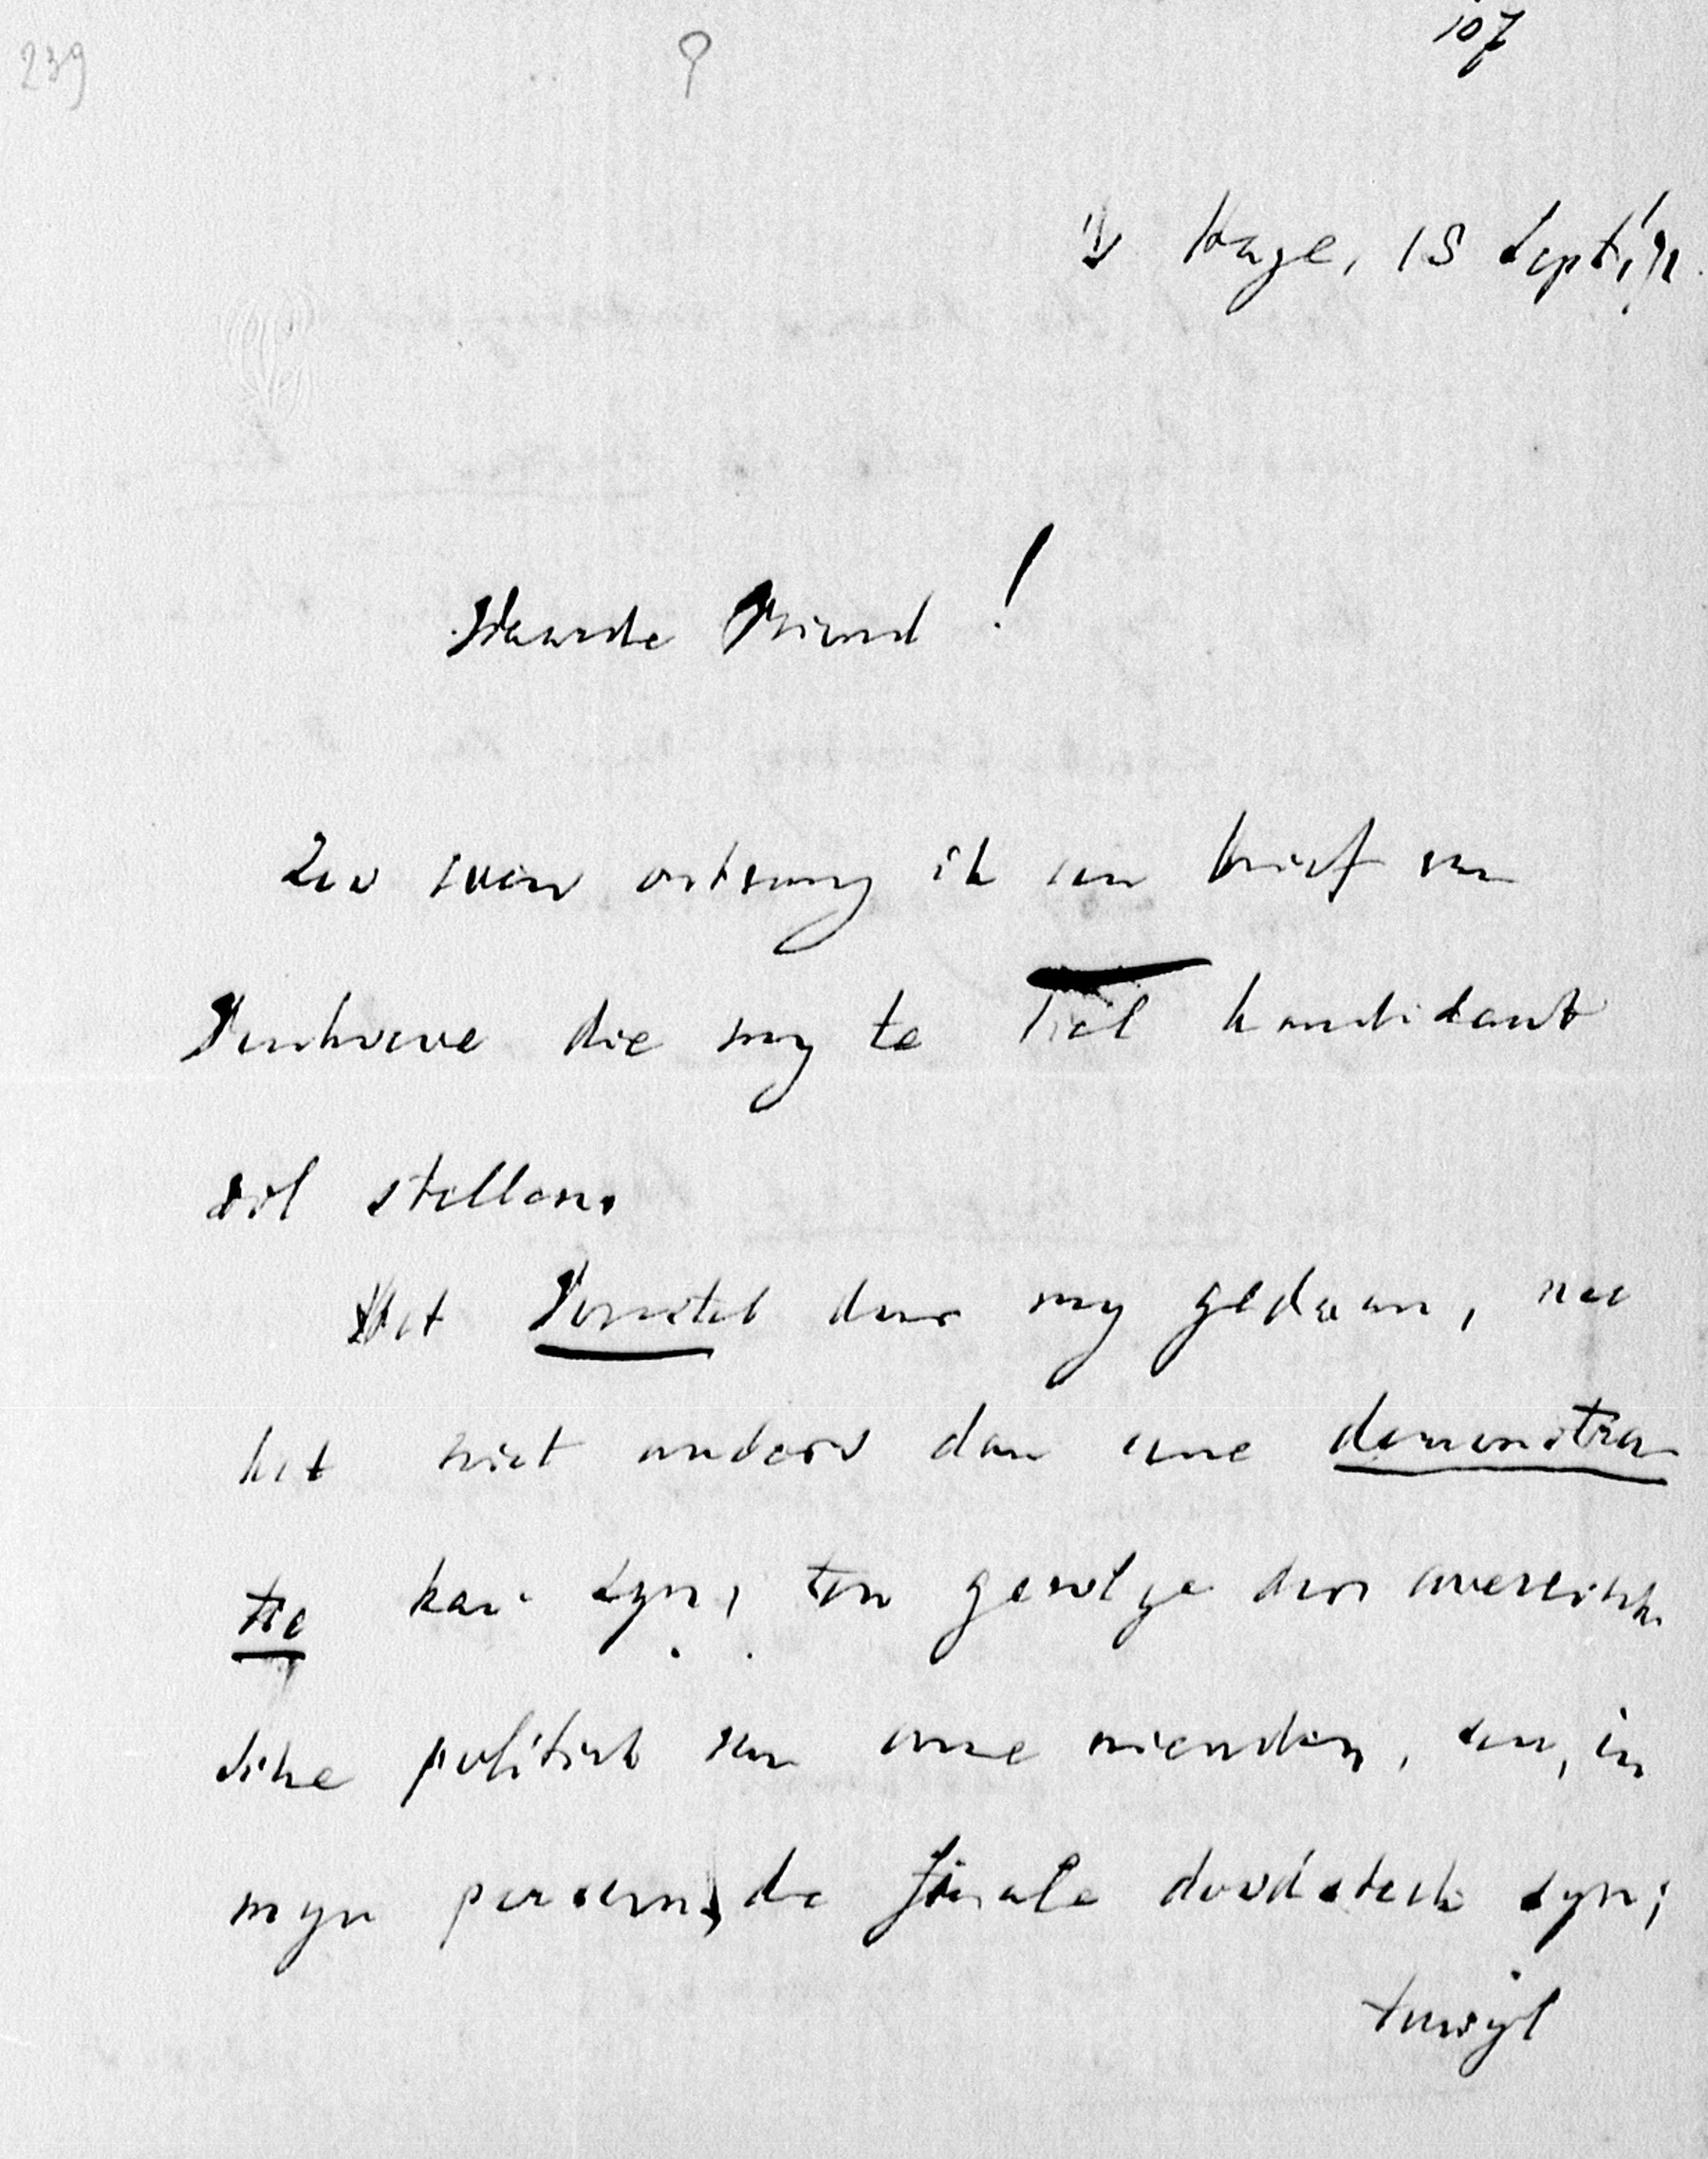 239
107
's Hage, 18 Sept.
Waarde Vriend!
Zoo even ontvang ik een brief van
die my te Tiel kandidaat
wil stellen.
Het Voorstel door my gedaan, nu
het niet anders dan eene demonstra
tie kan zyn, ten gevolge der
politiek van onze vrienden, en, in
myn persoon, de finale doodsteek zyn;
terwyl